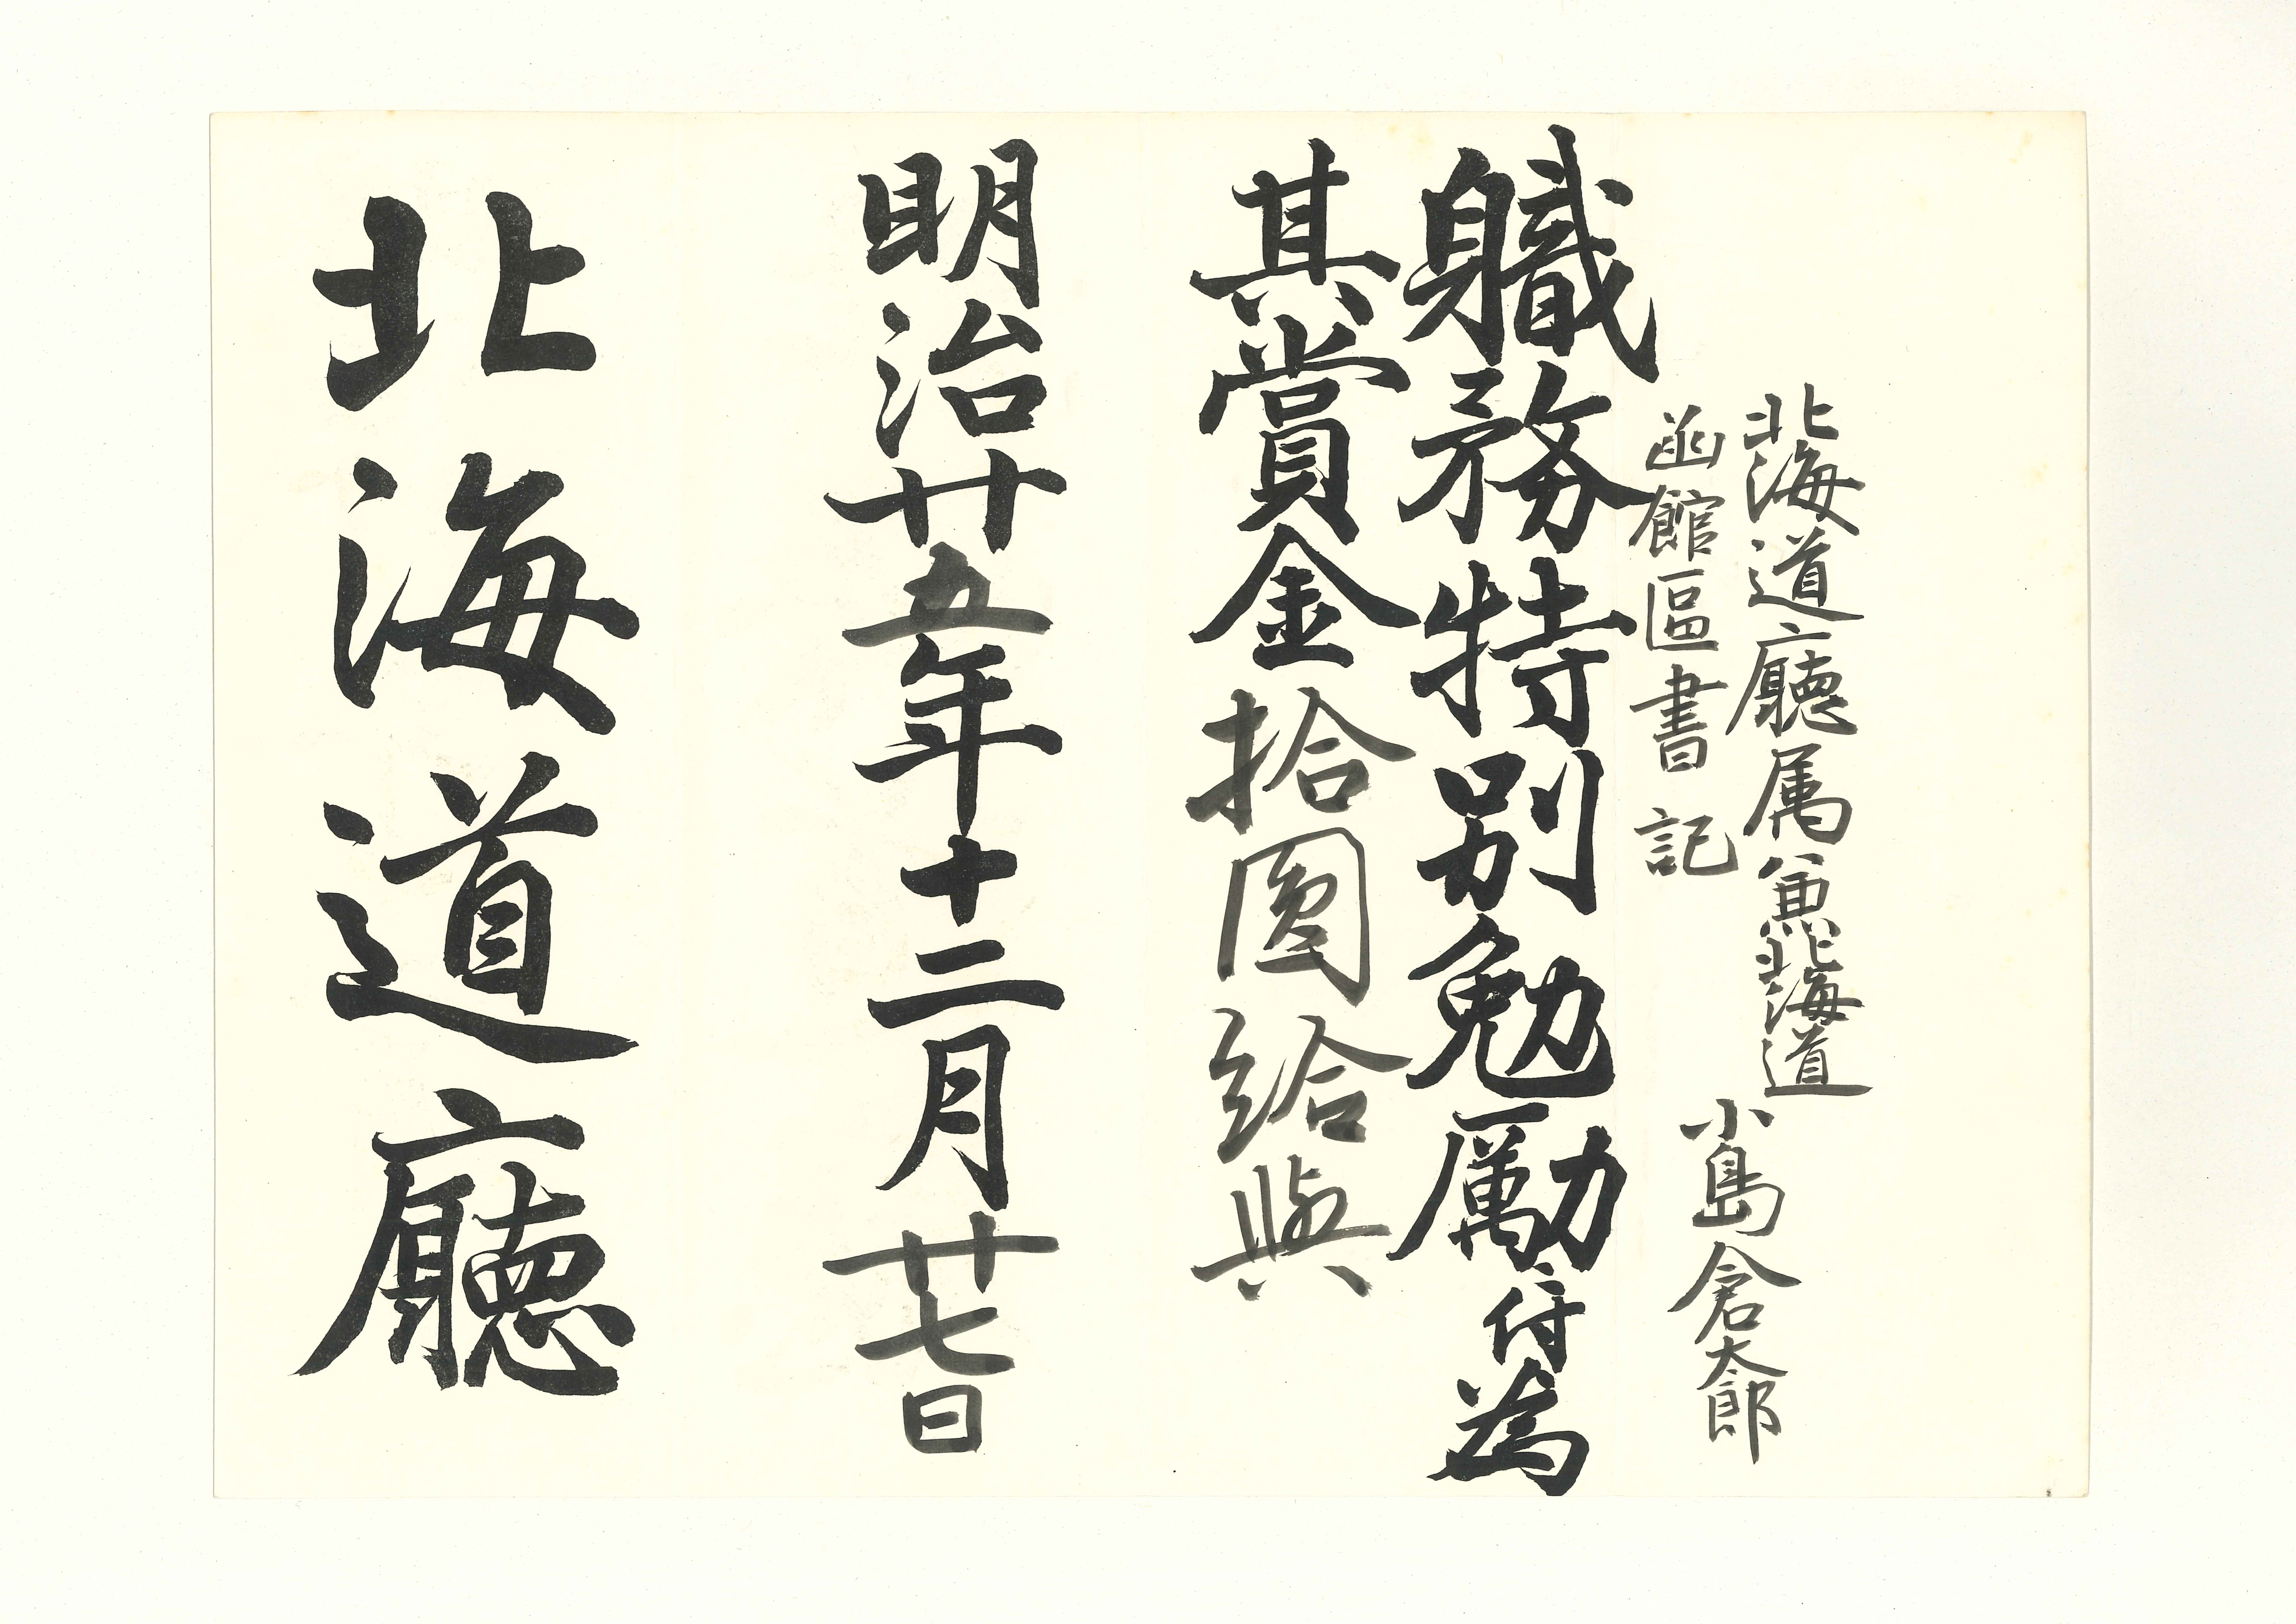 北海道廳属兼北海道
函館區書記
小島倉太郎
軄務特別勉勵付為
其賞金拾圓給與
明治廿五年十二月廿七日
北海道廳